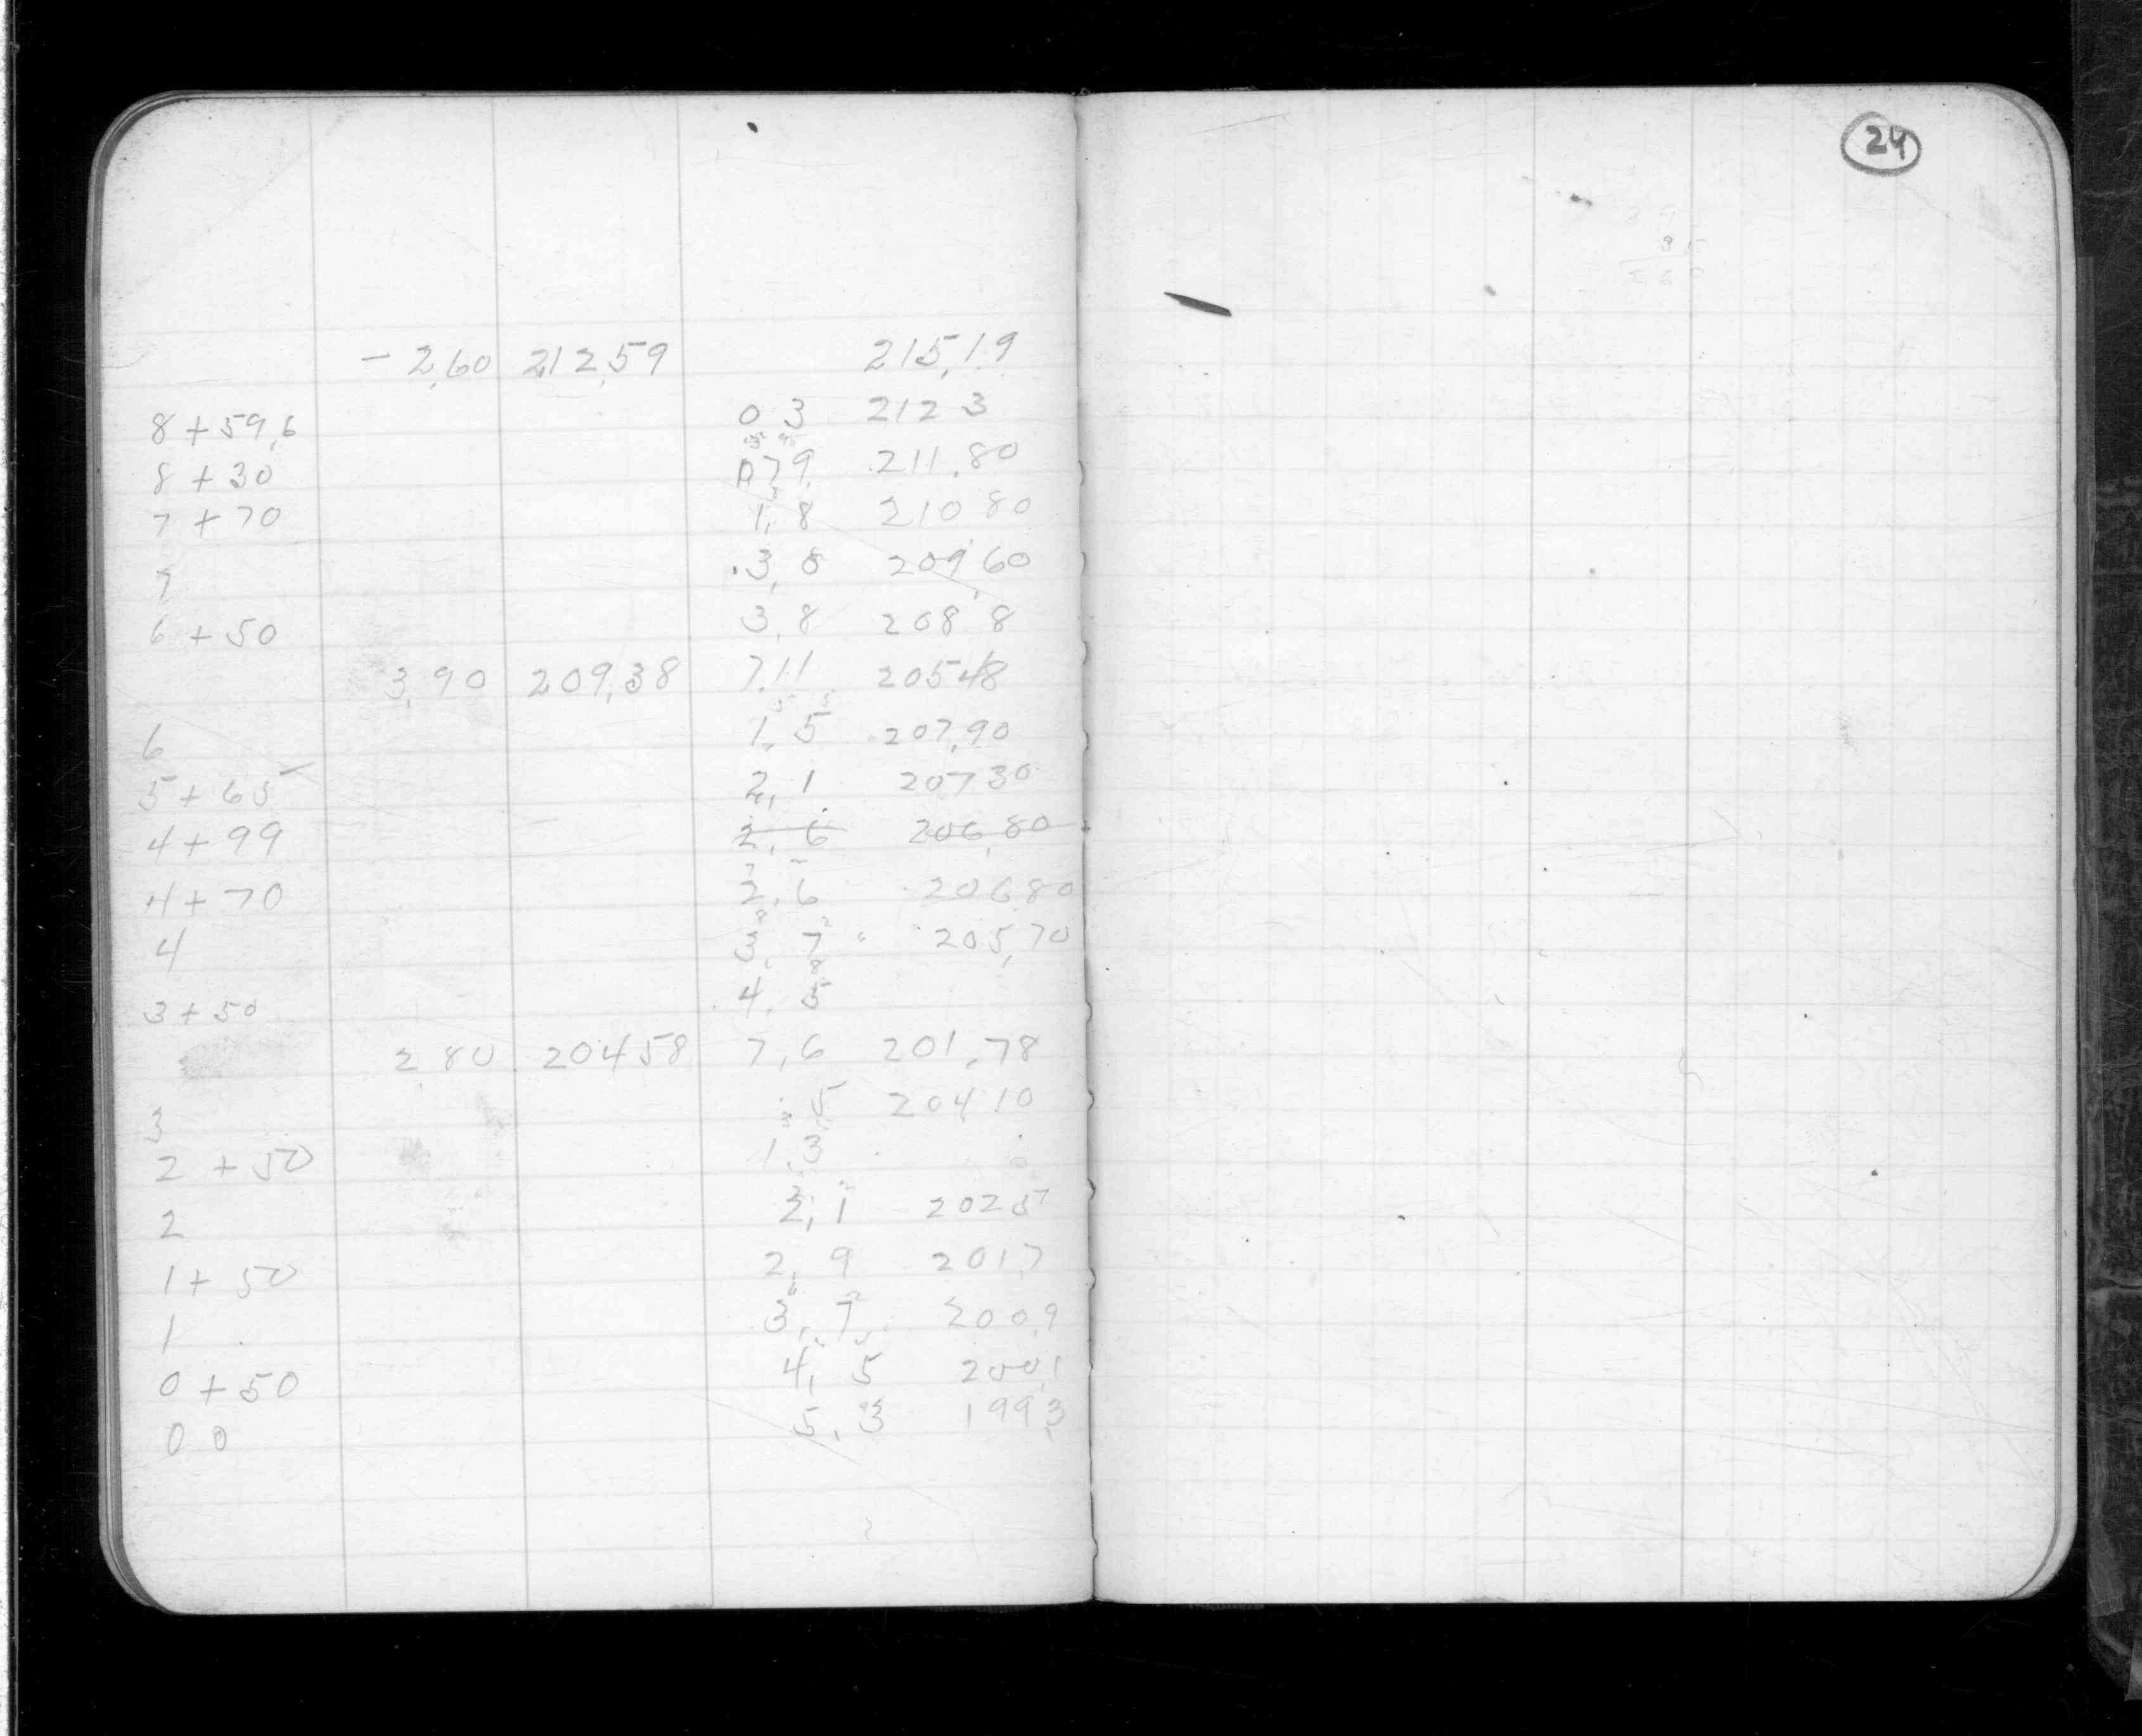 24
- 2,60 212,59 215,19
8 + 59,6 0 3 212 3
8 + 30 211.80
7 + 70 1, 8 210 80
7 3, 8 209,60
6 + 50 3, 8 208 8
3,90 209,38 7.11 205 48
6 1, 5 207,90
5 + 65 2, 1 207 30
4 + 99 2, 6 206,80
4 + 70 2, 6 206 80
4 3, 7 205,70
3 + 50 4, 5
2,80 204 58 7,6 201,78
3 5 204 10
2 + 50 1,3
2 2, 1 202 5
1 + 50 2, 9 201 7
1 3, 7 200,9
0 + 50 4, 5 200,1
0 0 5, 3 199,3